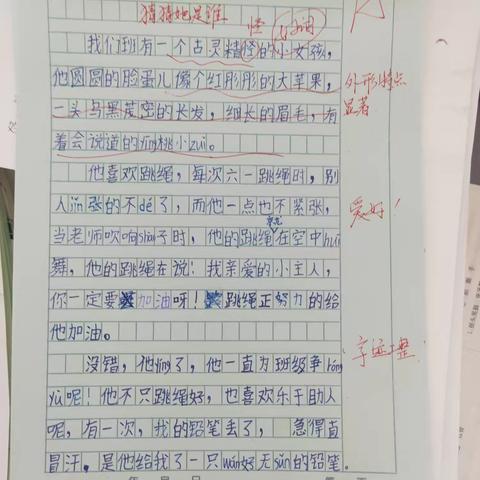 猜猜她是谁
怪
我们班有一个古灵精怪的小女孩,
他圆圆的脸蛋儿像个红彤彤的大苹果,
外形特点
显著
一头乌黑茂密的长发,细长的眉毛,有
着会说道的yīng桃小zuǐ。
他喜欢跳绳,每次六一跳绳时,别
人jǐn张的不dé了,而他一点也不紧张,
爱好!
当老师吹响shào子时,他的跳绳在空中huī
舞,他的跳绳在说:我亲爱的小主人,
你一定要加油呀!跳绳正努力的给
他加油。
字迹工整
没错,他yíng了,他一直为班级争róng
yù呢!他不只跳绳好,也喜欢乐于助人
呢,有一次,我的铅笔丢了,急得直
冒汗。是他给我了一只wán好无sǔn的铅笔。